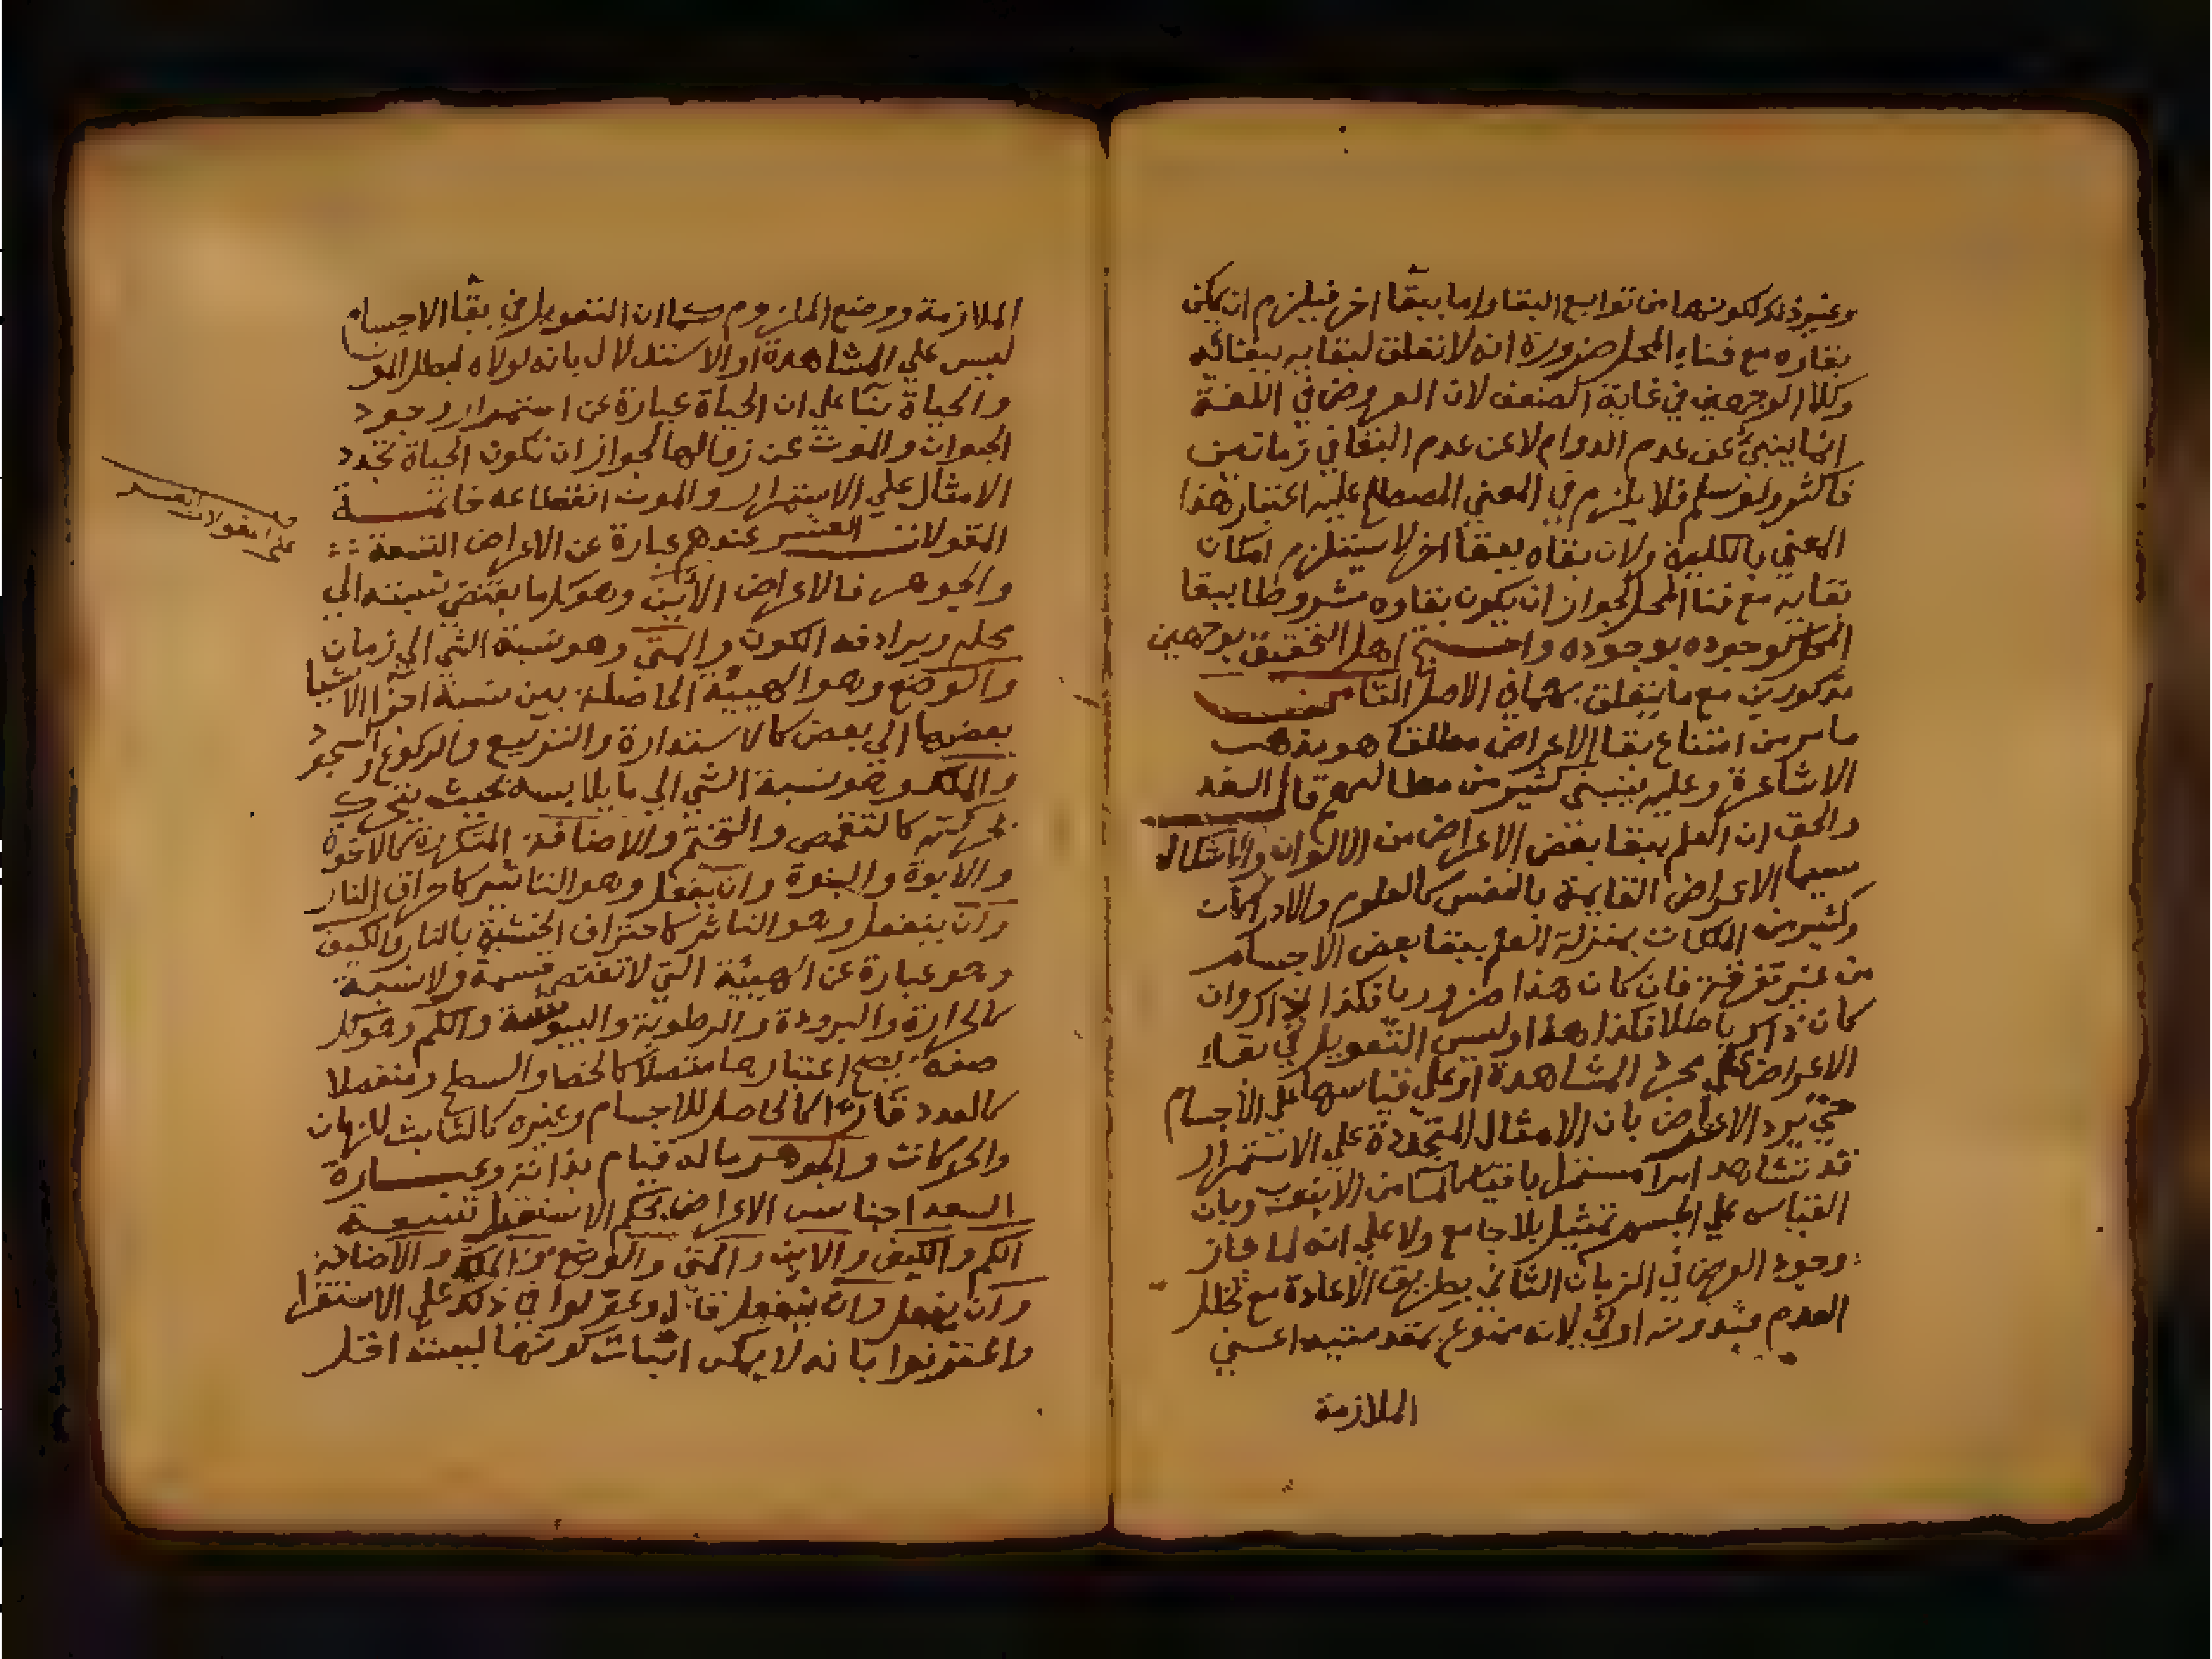 وغير ذلك لكونها من توابع البقا واما ببقا اخر فيلزم ان يمكن
بقاوه مع فناء المحل ضرورة انه لا تعلق لبقايه ببقائه
وكلا الوجهين في غاية الضعف لان العروض في اللغة
انما ينبئ عن عدم الدوام لا عن عدم البقا في زمانين
فاكثر ولو سلم فلا يلزم في المعني المصطلح عليه اعتبار هذا
المعني بالكلية ولان بقاه ببقا اخر لا يستلزم امكان
بقايه مع فنا المحل لجواز ان يكون بقاوه مشروطا ببقا
المحل كوجوده بوجوده واحتج اهل التحقيق بوجهين
مذكورين مع ما يتعلق بهما في الاصل
ما مر من امتناع بقا الاعراض مطلقا هو مذهب
الاشاعرة وعليه ينبني كثير من مطالبهم قال السعد
والحق ان العلم ببقا بعض الاعراض من الالوان والاشكال
سيما الاعراض القايمة بالنفس كالعلوم والادراكات
وكثير من الملكات بمنزلة العلم ببقا بعض الاجسام
من غير تفرقة فان كان هذا ضروريا فكذا ذاك وان
كان ذاك باطلا فكذا هذا وليس التعويل في بقاء
الاعراض علي مجرد المشاهدة او علي قياسها علي الاجسام
حتي يرد الاعتراض بان الامثال المتجددة علي الاستمرار
قد تشاهد امرا مستمرا باقيا كالماء من الانبوب وبان
القياس علي الجسم تمثيل بلا جامع ولا علي انه لما جاز
وجود العرض في الزمان الثاني بطريق الاعادة مع تخلل
العدم فبدونه اولي لانه ممنوع بمقدمتيه اعني
الملازمة
الملازمة ووضع الملزوم كما ان التعويل في بقا الاجسام
ليس علي المشاهدة او الاستدلال بانه لولاه لبطل الموت
والحياة بنا علي ان الحياة عبارة عن استمرار وجود
الحيوان والموت عن زوالها لجواز ان تكون الحياة تجدد
الامثال علي الاستمرار والموت انقطاعه خاتمـة
المقولات العشر عندهم عبارة عن الاعراض التسعة
والجوهر فالاعراض الأين وهو كل ما يقتضي نسبته الي
محله ويرادفه الكون والمتي وهو نسبة الشي الي زمان
والوضع وهو الهيئة الحاصلة من نسبة اجزا الاشيا
بعضها الي بعض كالاستدارة والتربيع والركوع والسجود
والملك وهو نسبة الشي الي ما يلابسه بحيث يتحرك
بحركته كالتقمص والتختم والاضافة المتكررة كالاخوة
والابوة والبنوة وان يفعل وهو التاثير كاحراق النار
وان ينفعل وهو التاثر كاحتراق الخشبة بالنار والكيف
وهو عبارة عن الهيئة التي لا تقتضي قسمة ولا نسبة
كالحرارة والبرودة والرطوبة واليبوسة والكم وهو كل
صفة يصح اعتبارها متصلا كالخط والسطح ومنفصلا
كالعدد قارا كالحاصل للاجسام وغيره كالثابت للزمان
والحركات والجوهر ما له قيام بذاته وعبـارة
السعد اجناس الاعراض بحكم الاستقرا تسعـة
الكم والكيف والاين والمتي والوضع والملك والاضافة
وان يفعل وان ينفعل قال وعولوا في ذلك علي الاستقرا
واعترفوا بانه لا يمكن اثبات كونها ليست اقل
علي المقولات العشر